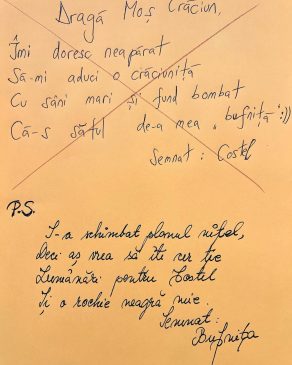 Dragă Moș Crăciun,
Îmi doresc neapărat
Să-mi aduci o crăciuniță
Cu sâni mari și fund bombat
Că-s sătul de-a mea "bufniță":))
Semnat: Costel
P.S.
S-a schimbat planul nițel,
Deci aș vrea să îți cer ție
Lumânări pentru Costel
Și o rochie neagră mie.
Semnat:
Bufnița